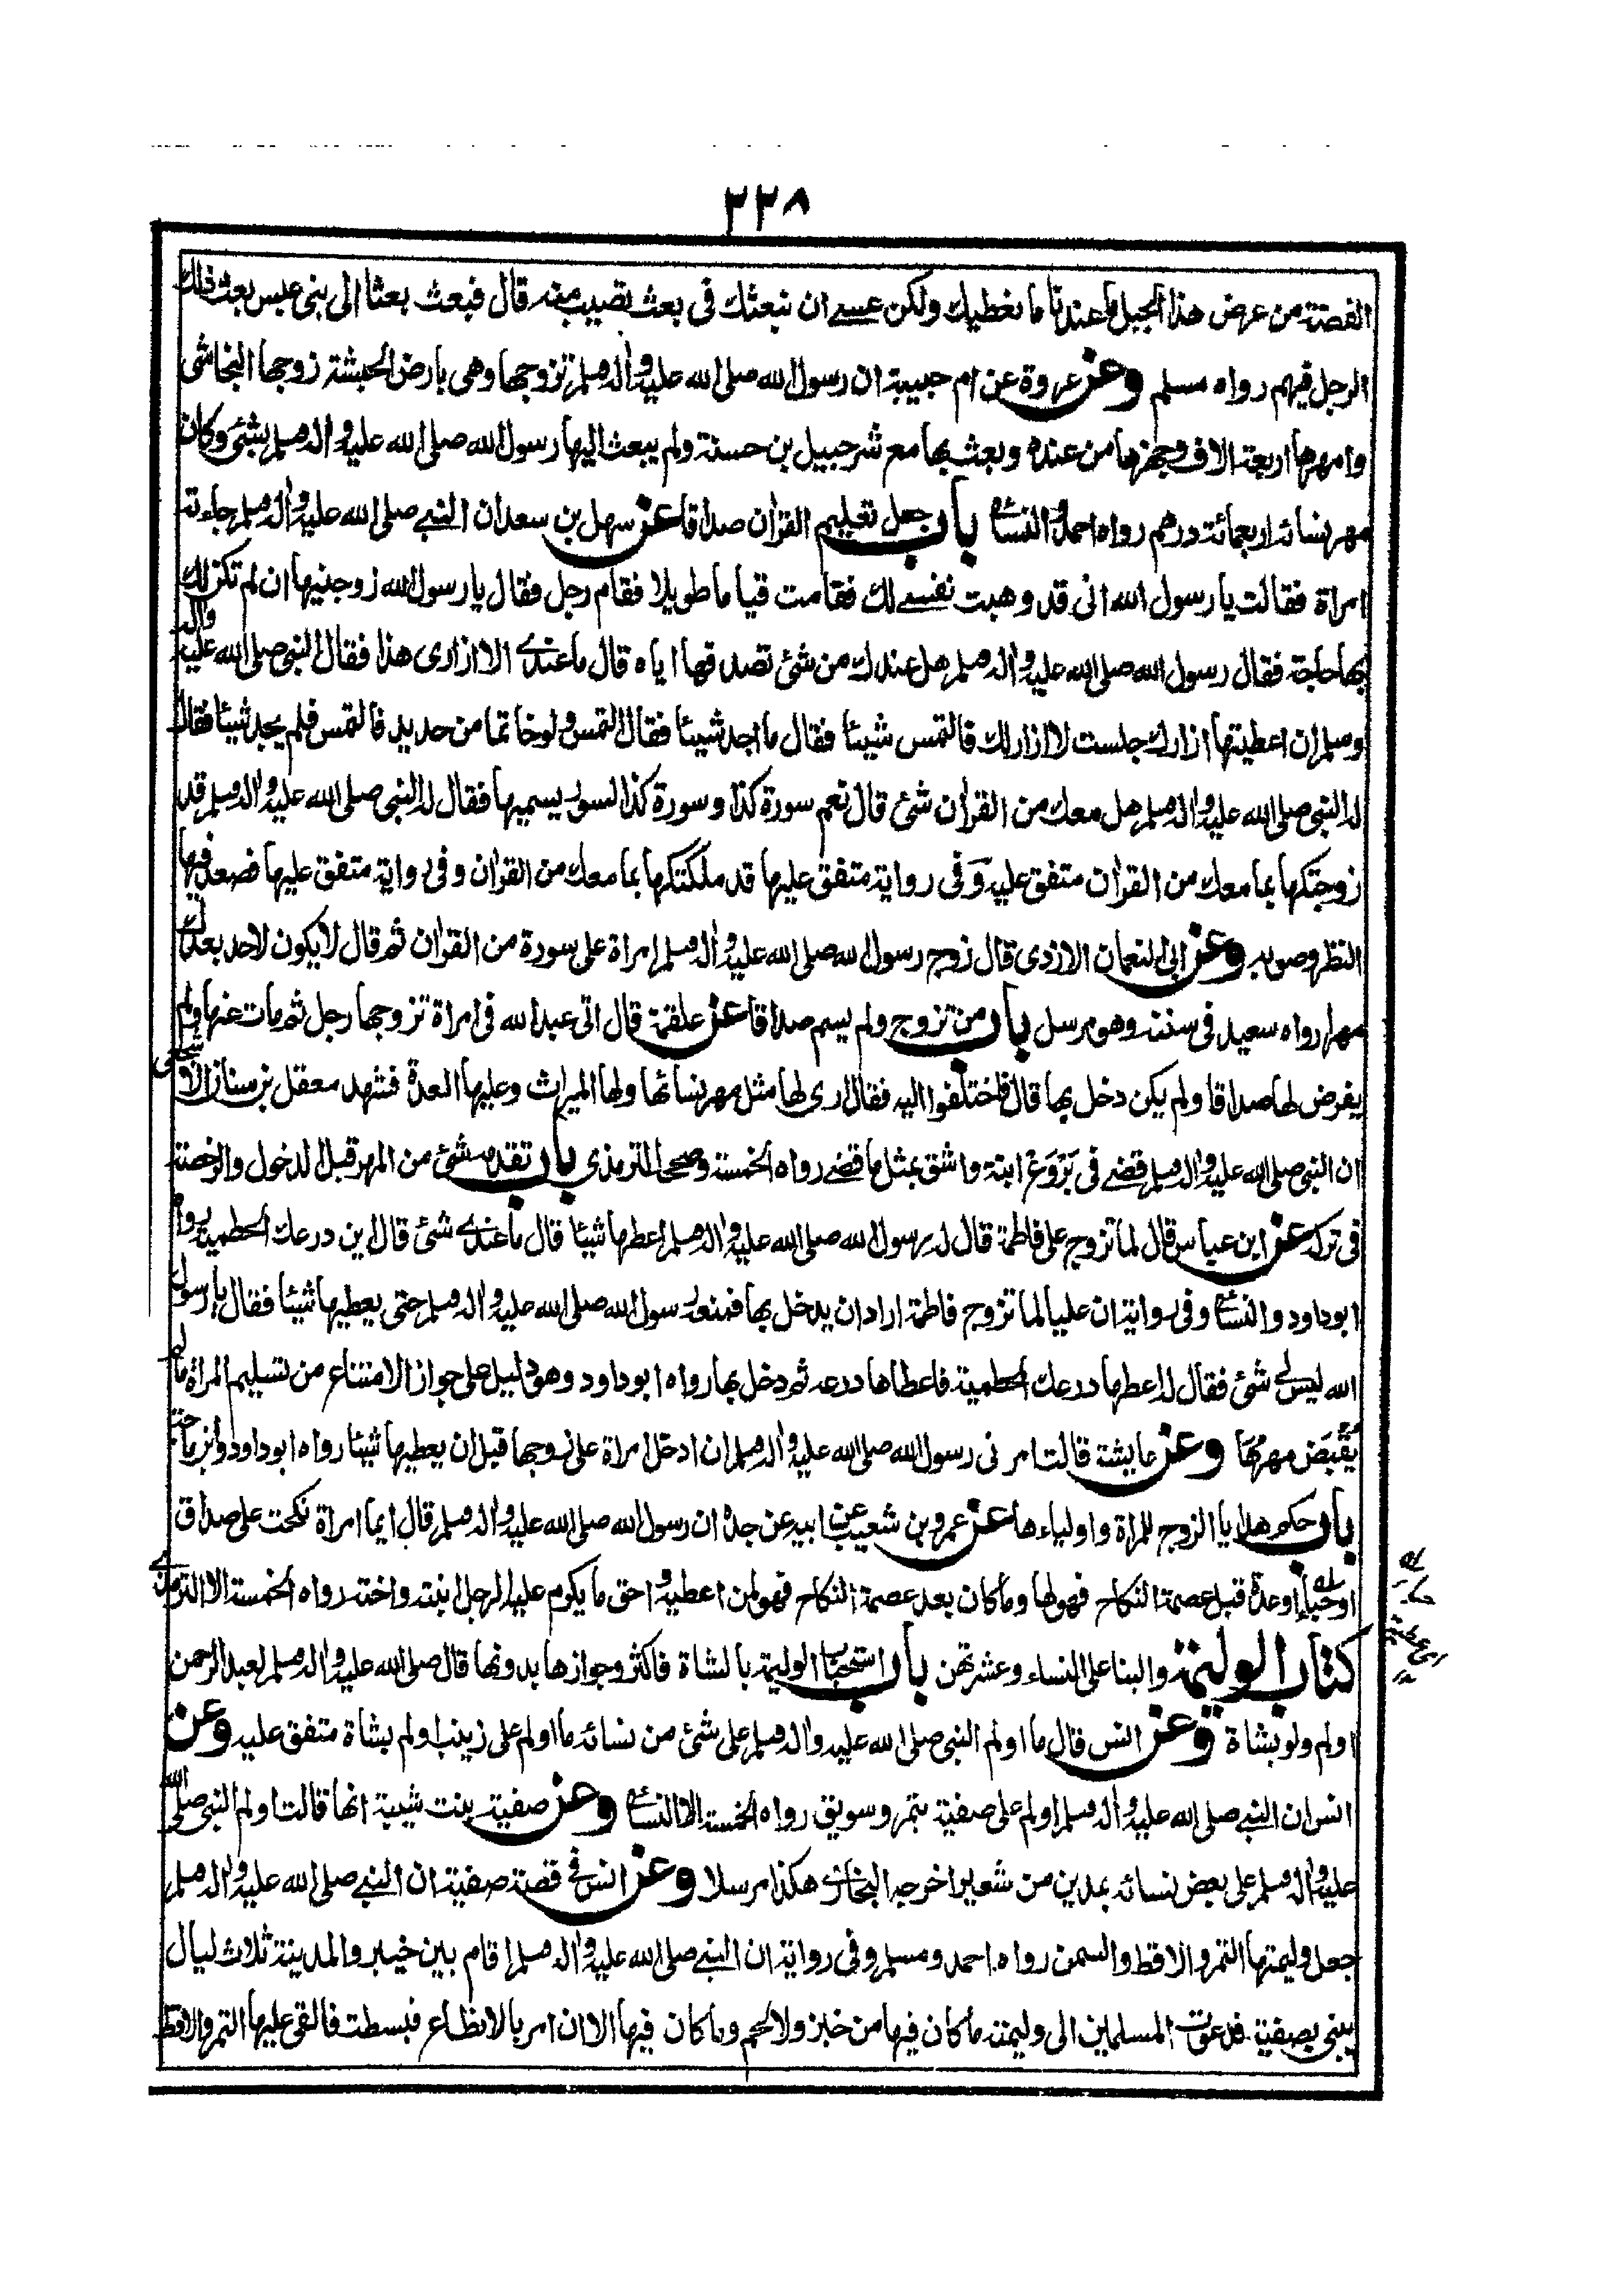 ٢٢٨
الفضة من عرض هذا الجبل ما عندنا ما نعطيك ولكن عسى ان نبعثك فى بعث تصيب منه قال فبعث بعثا الى بنى عبس بعث ذلك
الرجل فيهم رواه مسلم وعن عروة عن ام حبيبة ان رسول الله صلى الله عليه واله وسلم تزوجها وهى بارض الحبشة زوجها النجاشى
وامهرها اربعة الاف وجهزها من عنده وبعث بها مع شرحبيل بن حسنة ولم يبعث اليها رسول الله صلى الله عليه واله وسلم بشئ وكان
مهر نسائه اربعمائة درهم رواه احمد والنسائى باب جعل تعليم القران صداقا عن سهل بن سعد ان النبى صلى الله عليه واله وسلم جاءته
امراة فقالت يا رسول الله انى قد وهبت نفسى لك فقامت قياما طويلا فقام رجل فقال يا رسول الله زوجنيها ان لم تكن لك
بها حاجة فقال رسول الله صلى الله عليه واله وسلم هل عندك من شئ تصدقها اياه قال ما عندى الا ازارى هذا فقال النبى صلى الله عليه واله
وسلم ان اعطيتها ازارك جلست لا ازار لك فالتمس شيئا فقال ما اجد شيئا فقال التمس ولو خاتما من حديد فالتمس فلم يجد شيئا فقال
له النبى صلى الله عليه واله وسلم هل معك من القران شئ قال نعم سورة كذا وسورة كذا لسور يسميها فقال له النبى صلى الله عليه واله وسلم قد
زوجتكها بما معك من القران متفق عليه وفى رواية متفق عليها قد ملكتكها بما معك من القران وفى رواية متفق عليها فصعد فيها
النظر وصوبه وعن ابى النعمان الازدى قال زوج رسول الله صلى الله عليه واله وسلم امراة على سورة من القران ثم قال لا يكون لاحد بعدك
مهرا رواه سعيد فى سننه وهو مرسل باب من تزوج ولم يسم صداقا عن علقمة قال اتى عبد الله فى امراة تزوجها رجل ثم مات عنها ولم
يفرض لها صداقا ولم يكن دخل بها قال فاختلفوا اليه فقال ارى لها مثل مهر نسائها ولها الميراث وعليها العدة فشهد معقل بن سنان الاشجعى
ان النبى صلى الله عليه واله وسلم قضى فى بَرْوَعْ ابنة واشق بمثل ما قضى رواه الخمسة وصححه الترمذى باب تقدمة شئ من المهر قبل الدخول والرخصة
فى تركه عن ابن عباس قال لما تزوج على فاطمة قال له رسول الله صلى الله عليه واله وسلم اعطها شيئا قال ما عندى شئ قال اين درعك الحطمية رواه
ابو داود والنسائى وفى رواية ان عليا لما تزوج فاطمة اراد ان يدخل بها فمنعه رسول الله صلى الله عليه واله وسلم حتى يعطيها شيئا فقال يا رسول
الله ليس لى شئ فقال له اعطها درعك الحطمية فاعطاها درعه ثم دخل بها رواه ابو داود وهو دليل على جواز الامتناع من تسليم المراة ما لم
يُقْبَض مهرُهَا وعن عايشة قالت امرنى رسول الله صلى الله عليه واله وسلم ان ادخل امراة على زوجها قبل ان يعطيها شيئا رواه ابو داود وابن ماجة
باب حكم هدايا الزوج للمراة واولياءها عن عمرو بن شعيب عن ابيه عن جده ان رسول الله صلى الله عليه واله وسلم قال ايما امراة نكحت على صداق
او حباء او عدة قبل عصمة النكاح فهو لها وما كان بعد عصمة النكاح فهو لمن اعطيه واحق ما يكرم عليه الرجل ابنته واخته رواه الخمسة الا الترمذى
كتاب الوليمة والبنا على النساء وعشرتهن باب استحباب الوليمة بالشاة فاكثر وجوازها بدونها قال صلى الله عليه واله وسلم لعبد الرحمن
اولم ولو بشاة وعن انس قال ما اولم النبى صلى الله عليه واله وسلم على شئ من نسائه ما اولم على زينب اولم بشاة متفق عليه وعن
انس ان النبى صلى الله عليه واله وسلم اولم على صفية بتمر وسويق رواه الخمسة الا النسائى وعن صفية بنت شيبة انها قالت اولم النبى صلى الله
عليه واله وسلم على بعض نسائه بمدين من شعير اخرجه البخارى هكذا مرسلا وعن انس فى قصة صفية ان النبى صلى الله عليه واله وسلم
جعل وليمتها التمر والاقط والسمن رواه احمد ومسلم وفى رواية ان النبى صلى الله عليه واله وسلم اقام بين خيبر والمدينة ثلاث ليال
يبنى بصفية فدعوت المسلمين الى وليمته ما كان فيها من خبز ولا لحم وما كان فيها الا ان امر بالانطاع فبسطت فالقى عليها التمر والاقط